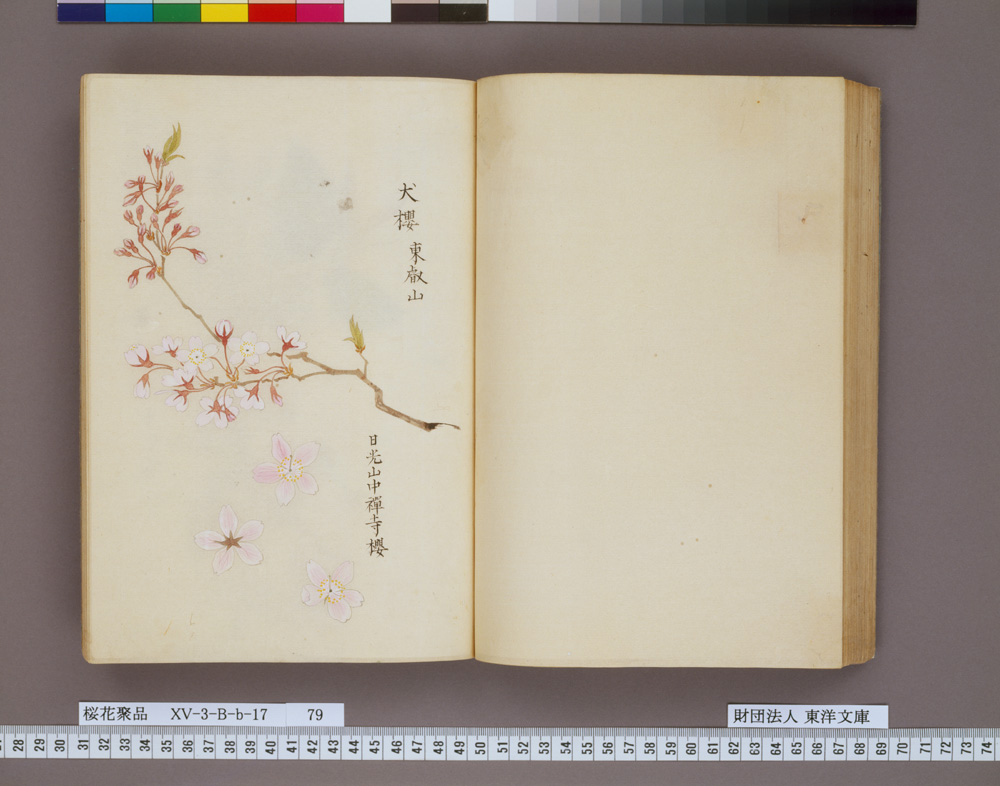 犬櫻 東叡山
日光山中禪寺櫻
桜花聚品 XV-3-B-b-17 79
財団法人 東洋文庫
28 29 30 31 32 33 34 35 36 37 38 39 40 41 42 43 44 45 46 47 48 49 50 51 52 53 54 55 56 57 58 59 60 61 62 63 64 65 66 67 68 69 70 71 72 73 74